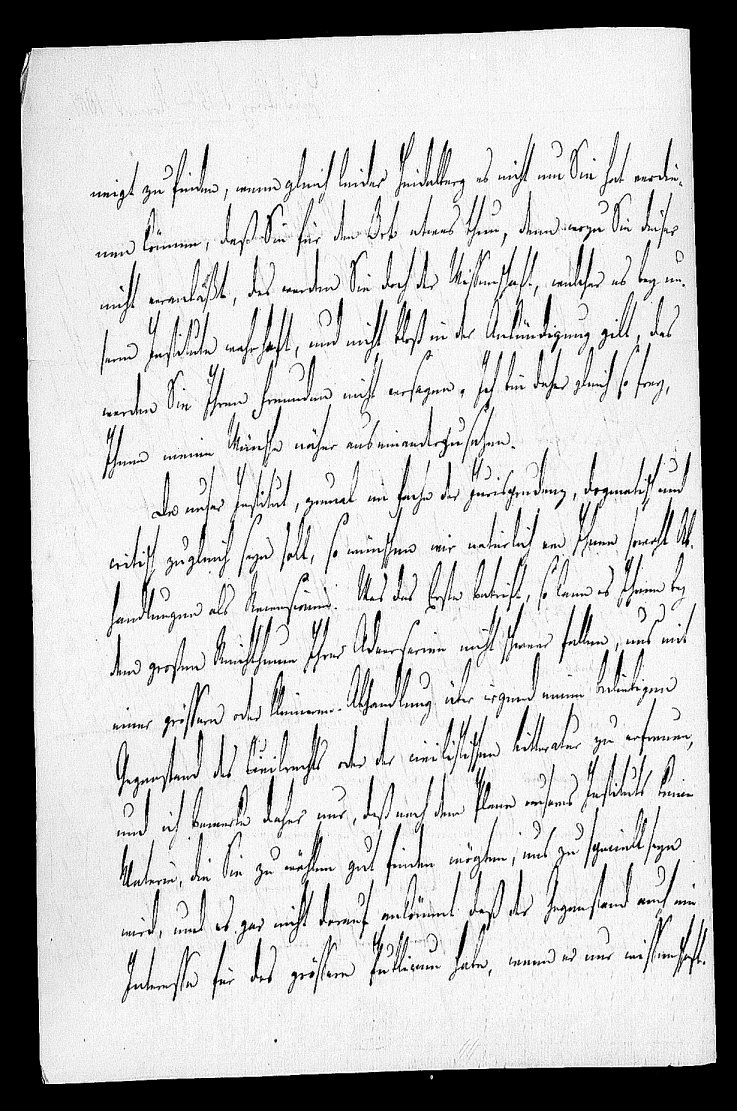 neigt zu finden, wenn gleich leider Heidelberg es nicht um Sie hat verdie-
nen können, daß Sie für den Ort etwas thun, denn wozu Sie dieser
nicht veranläßt, das werden Sie doch der Wissenschaft, welcher es bey un-
serm Institute wahrhaft, und nicht bloß in der Ankündigung gilt, das
werden Sie Ihren Freunden nicht versagen. Ich bin daher gleich so frey,
Ihnen meine Wünsche näher auseinanderzusetzen.
Da unser Institut, zumal im Fache der Jurisprudenz, dogmatisch und
critisch zugleich seyn soll, so wünschen wir natürlich von Ihnen sowohl Ab-
handlungen als Recensionen. Was das Erste betrift, so kann es Ihnen bey
dem großen Reichthum Ihrer Adversarien nicht schwer fallen, uns mit
einer grössern oder kleineren Abhandlung über irgend einen beliebigen
Gegenstand des Civilrechts oder der civilistischen Litteratur zu erfreuen,
und ich bemerke daher nur, daß nach dem Plane unseres Instituts keine
Materie, die Sie zu wählen gut finden mögten, uns zu speciell seyn
wird, und es gar nicht darauf ankömmt daß der Gegenstand auch ein
Interesse für das grössere Publicum habe, wenn er nur wissenschaft-